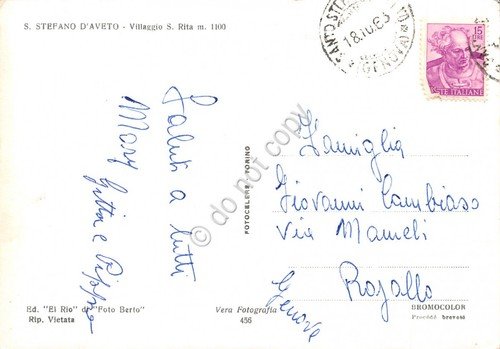 S. STEFANO D'AVETO - Villaggio S. Rita m. 1100
SANTO STEFANO
18.10.63
(GENOVA)
15
POSTE ITALIANE
Saluti a tutti
Mary Gitta e Pippo
Famiglia
Giovanni Cambiaso
Via Mameli
Rapallo
Genova
FOTOCELERE - TORINO
do not copy
Ed. "El Rio" di "Foto Berto"
Rip. Vietata
Vera Fotografia
456
BROMOCOLOR
Procedé breveté